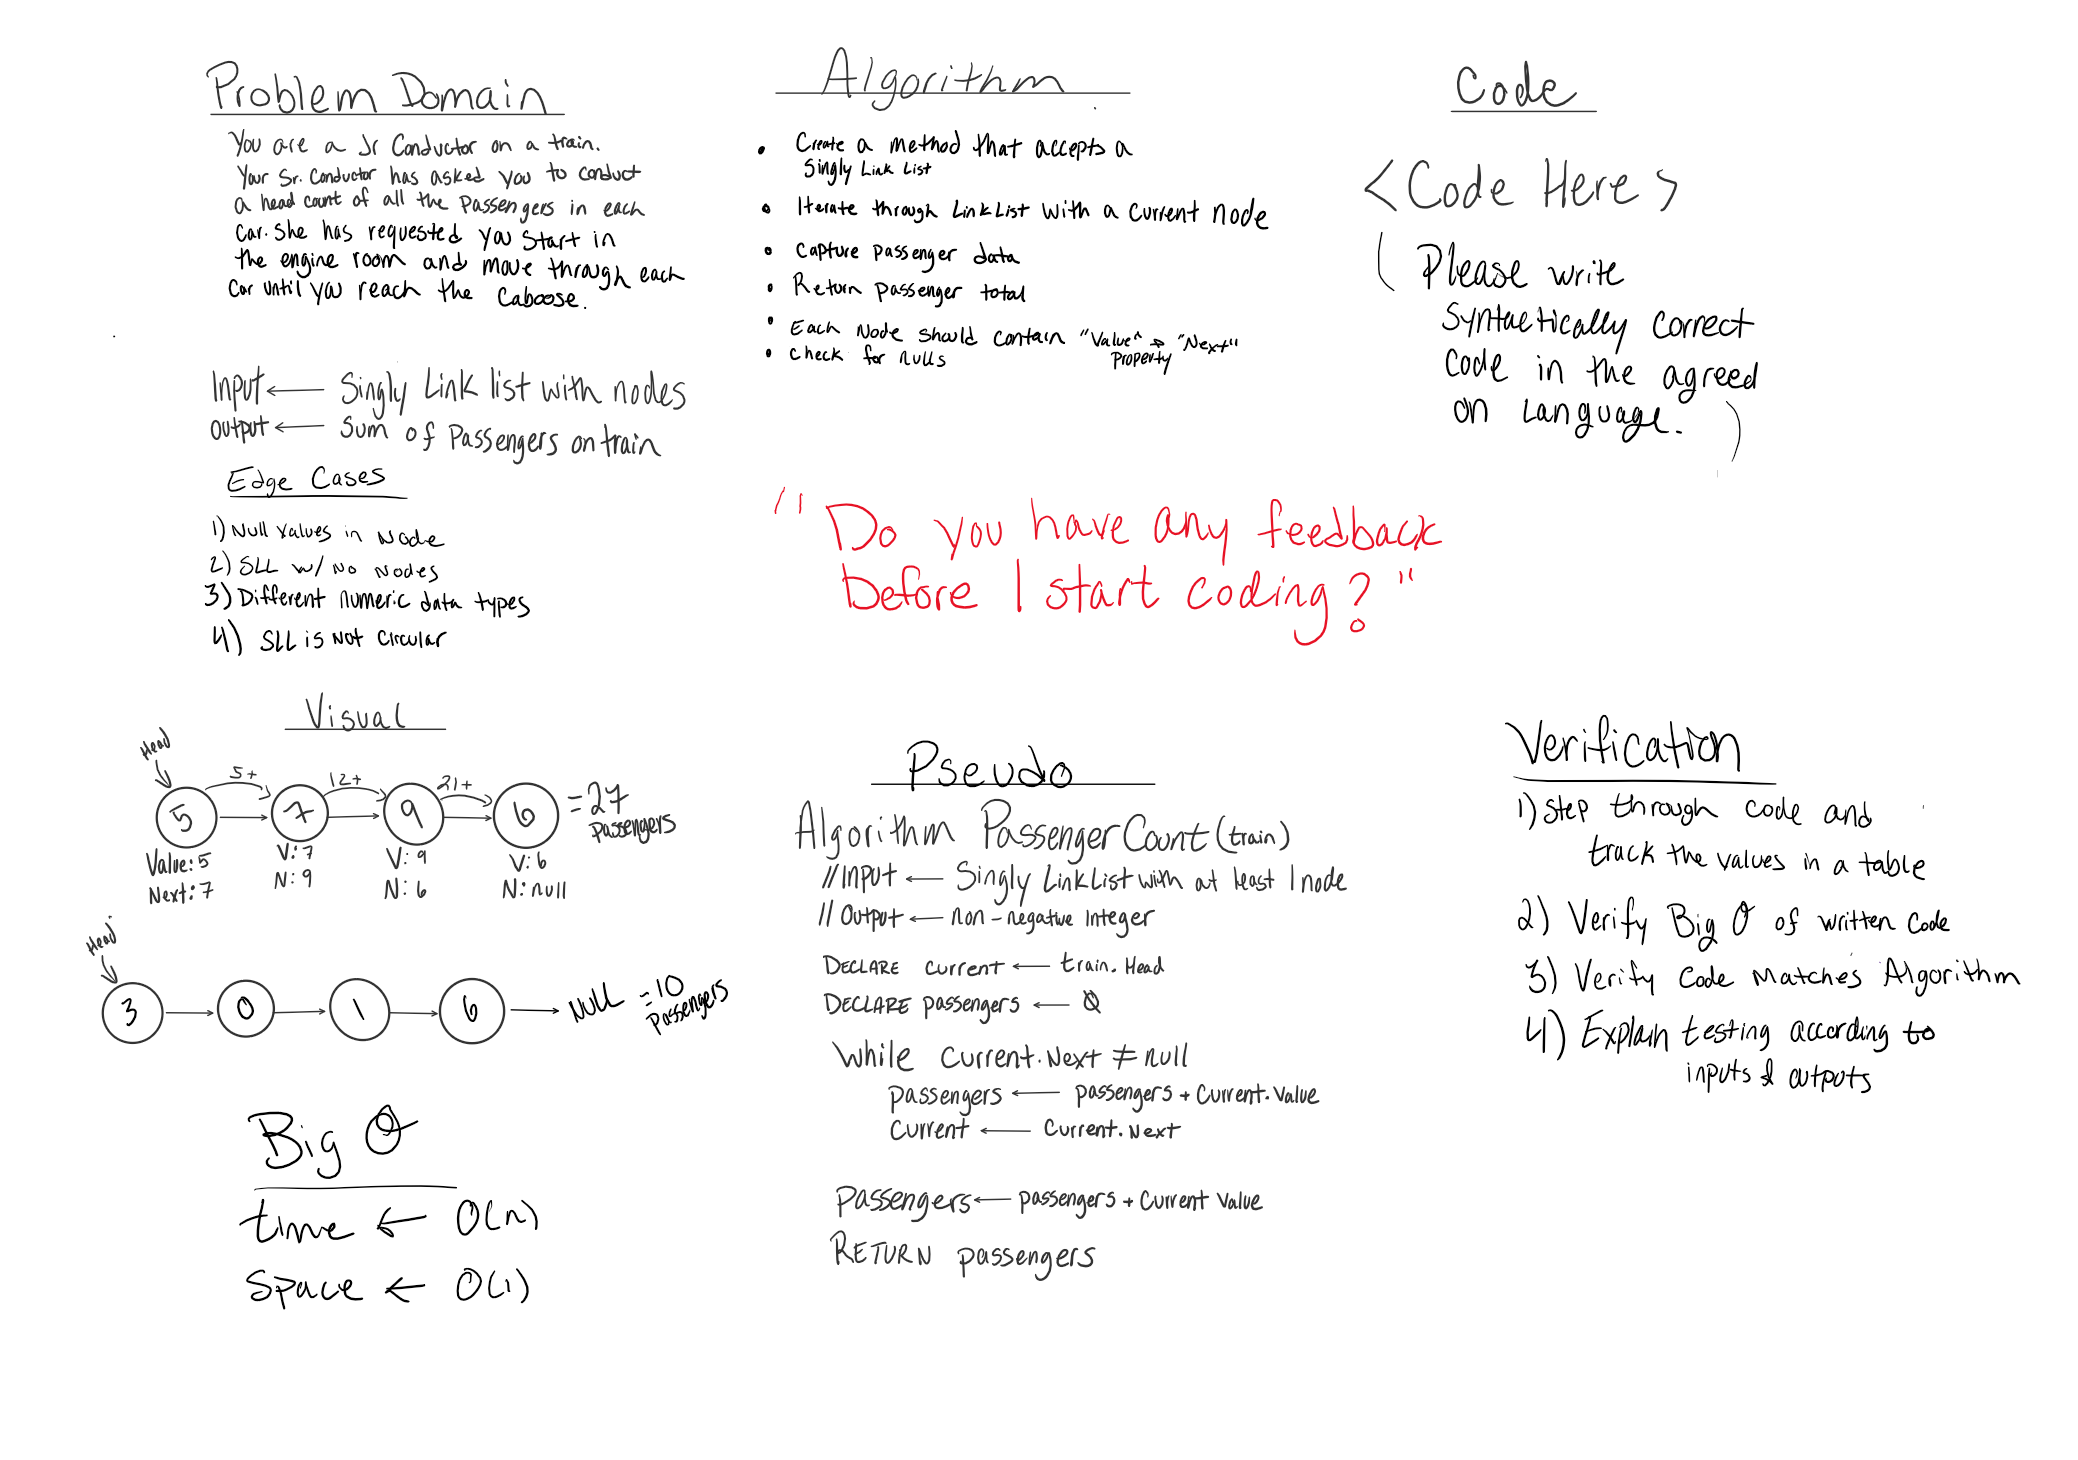 Problem Domain
You are a Jr Conductor on a train.
Your Sr. Conductor has asked you to conduct
a head count of all the Passengers in each
Car. She has requested you start in
the engine room and move through each
Car until you reach the Caboose.
Input ← Singly Link list with nodes
output ← Sum of Passengers on train
Edge Cases
1) Null Values in Node
2) SLL w/ No Nodes
3) Different numeric data types
4) SLL is Not Circular
Visual
Head
5+ 12+ 21+
5 7 9 6 = 27
Passengers
Value: 5 V: 7 V: 9 V: 6
Next: 7 N: 9 N: 6 N: null
Head
3 0 1 6 NULL = 10
Passengers
Big O
time ← O(n)
Space ← O(1)
Algorithm
• Create a method that accepts a
Singly Link List
• Iterate through Link List with a Current node
• Capture passenger data
• Return passenger total
• Each Node should contain "Value" & "Next"
Property
• Check for nulls
"Do you have any feedback
before I start coding?"
Pseudo
Algorithm PassengerCount (train)
// Input ← Singly Link List with at least 1 node
// Output ← non-negative Integer
DECLARE Current ← train.Head
DECLARE passengers ← 0
While Current.Next ≠ null
passengers ← passengers + Current.Value
Current ← Current.Next
Passengers ← passengers + Current Value
RETURN passengers
Code
<Code Here>
(Please write
Syntactically correct
Code in the agreed
on Language.)
Verification
1) Step through code and
track the values in a table
2) Verify Big O of written Code
3) Verify Code Matches Algorithm
4) Explain testing according to
inputs & outputs